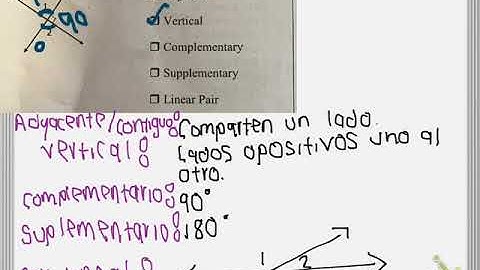 90
Vertical
Complementary
Supplementary
Linear Pair
Adyacente/contiguo: Comparten un lado.
vertical: Lados opositivos uno al
otro.
complementario: 90°
suplementario: 180°
1 2